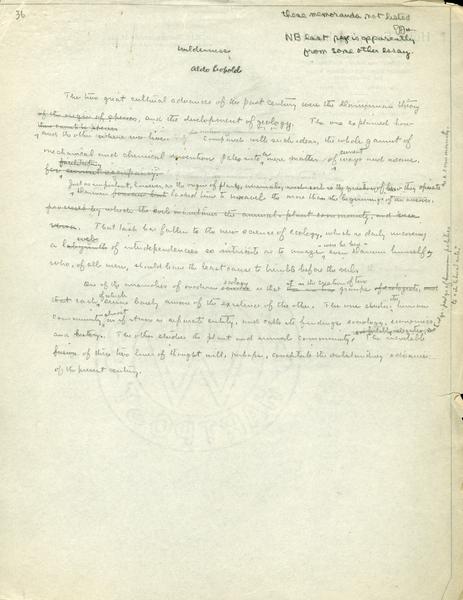 36
these memoranda not listed
NB last is apparently
from some other essay.
Wilderness
Aldo Leopold
The two great cultural advances of the past century were the Darwinian theory
of the origin of species, and the development of geology. The one explained how
and the other where we live. Compared with such ideas, the whole gamut of
mechanical and chemical invention pales into a mere matter of current ways and means.
Just as important, however, as the origin of plants, animals, and soil is the question of how they operate
as a community
That task has fallen to the new science of ecology, which is daily uncovering
a web of interdependencies so intricate as to amaze even Darwin himself
who, of all men, should have the least cause to tremble before the veil.
One of the anomalies of modern ecology is that it is the creation of two groups
each of which seems barely aware of the existence of the other. The one studies the human
community almost as if it were a separate entity, and calls its findings sociology, economics,
and history. The other studies the plant and animal community, The inevitable
fusion of these two lines of thought will, perhaps, constitute the outstanding advance
of the present century.